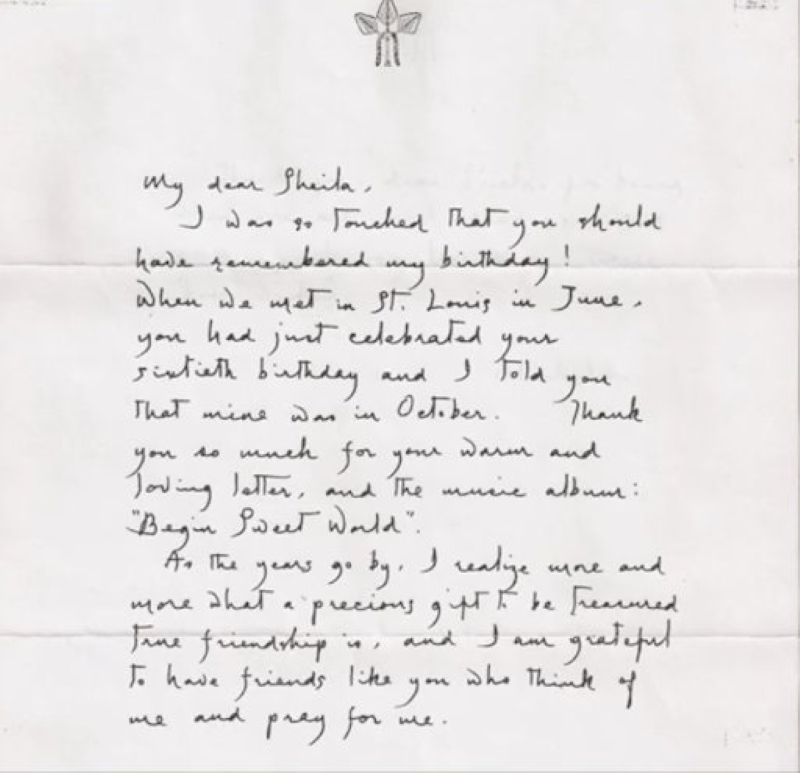 My dear Sheila,
I was so touched that you should
have remembered my birthday!
When we met in St. Louis in June,
you had just celebrated your
sixtieth birthday and I told you
that mine was in October. Thank
you so much for your warm and
loving letter, and the music album:
"Begin Sweet World".
As the years go by, I realize more and
more what a precious gift to be treasured
true friendship is, and I am grateful
to have friends like you who think of
me and pray for me.